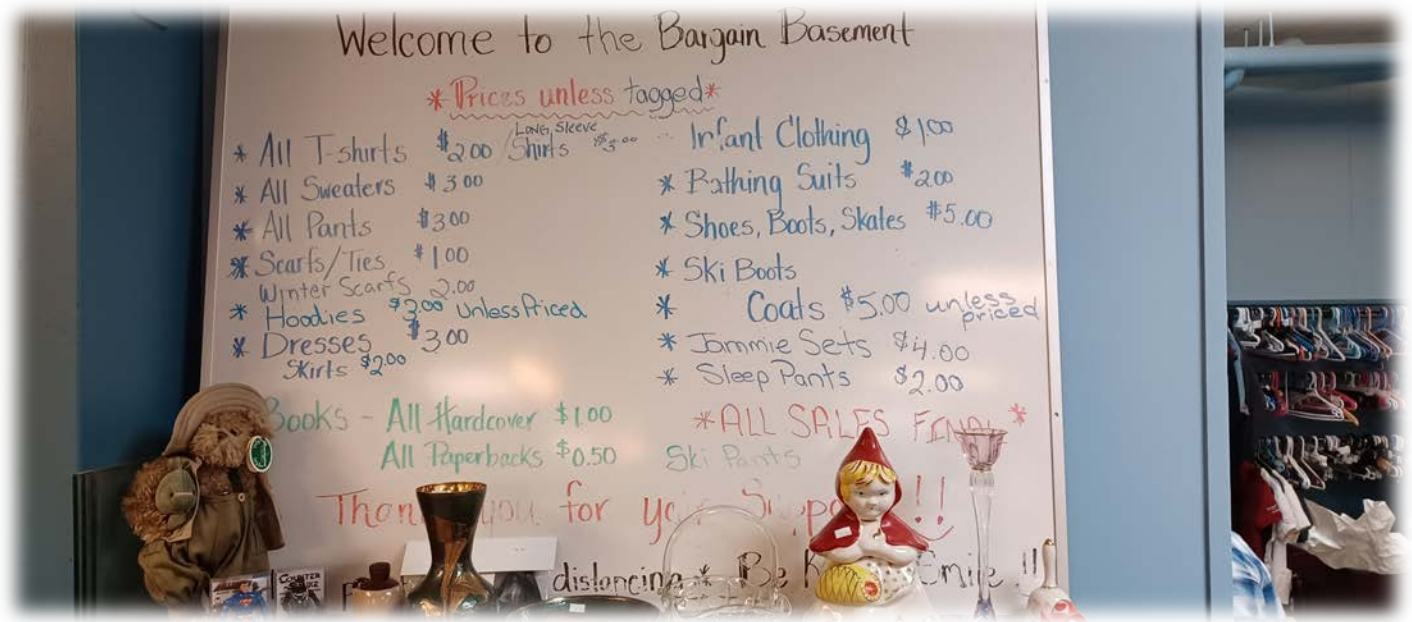 Welcome to the Bargain Basement
*Prices unless tagged*
* All T-shirts $2.00 / Long Sleeve Shirts $3.00
* All Sweaters $3.00
* All Pants $3.00
* Scarfs/Ties $1.00
Winter Scarfs 2.00
* Hoodies $3.00 Unless Priced
* Dresses $3.00
Skirts $2.00
Infant Clothing $1.00
* Bathing Suits $2.00
* Shoes, Boots, Skates $5.00
* Ski Boots
* Coats $5.00 unless priced
* Jammie Sets $4.00
* Sleep Pants $2.00
Books - All Hardcover $1.00
All Paperbacks $0.50
*ALL SALES FINAL*
Ski Pants
Thank you for your Support !!
distancing * Be Smile !!